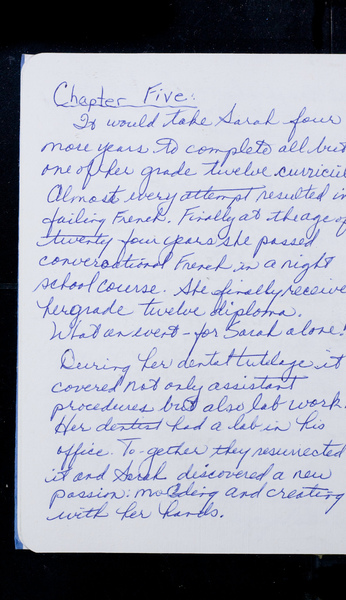 Chapter Five:
It would take Sarah four
more years to complete all but
one of her grade twelve curricul
Almost every attempt resulted in
failing French. Finally at the age of
twenty four years she passed
conversational French in a night
school course. She finally receive
her grade twelve diploma.
What an event - for Sarah alone!
During her dental tutelage it
covered not only assistant
procedures but also lab work.
Her dentist had a lab in his
office. To-gether they resurrected
it and Sarah discovered a new
passion: molding and creating
with her hands.